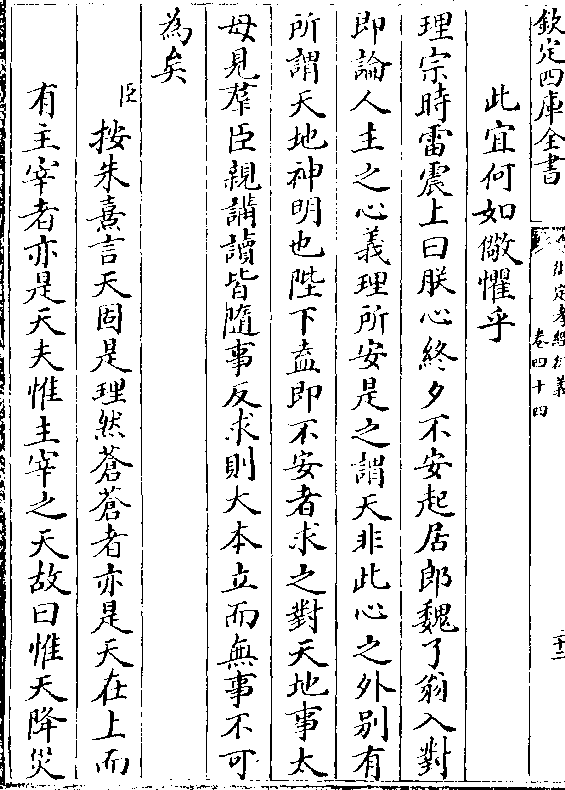 欽定四庫全書
御定孝經衍義
卷四十四
此宜何如儆懼乎
理宗時雷震上曰朕心終夕不安起居郎魏了翁入對
即論人主之心義理所安是之謂天非此心之外别有
所謂天地神明也陛下盍即不安者求之對天地事太
母見羣臣親講讀皆隨事反求則大本立而無事不可
為矣
臣按朱熹言天固是理然蒼蒼者亦是天在上而
有主宰者亦是天夫惟主宰之天故曰惟天降災